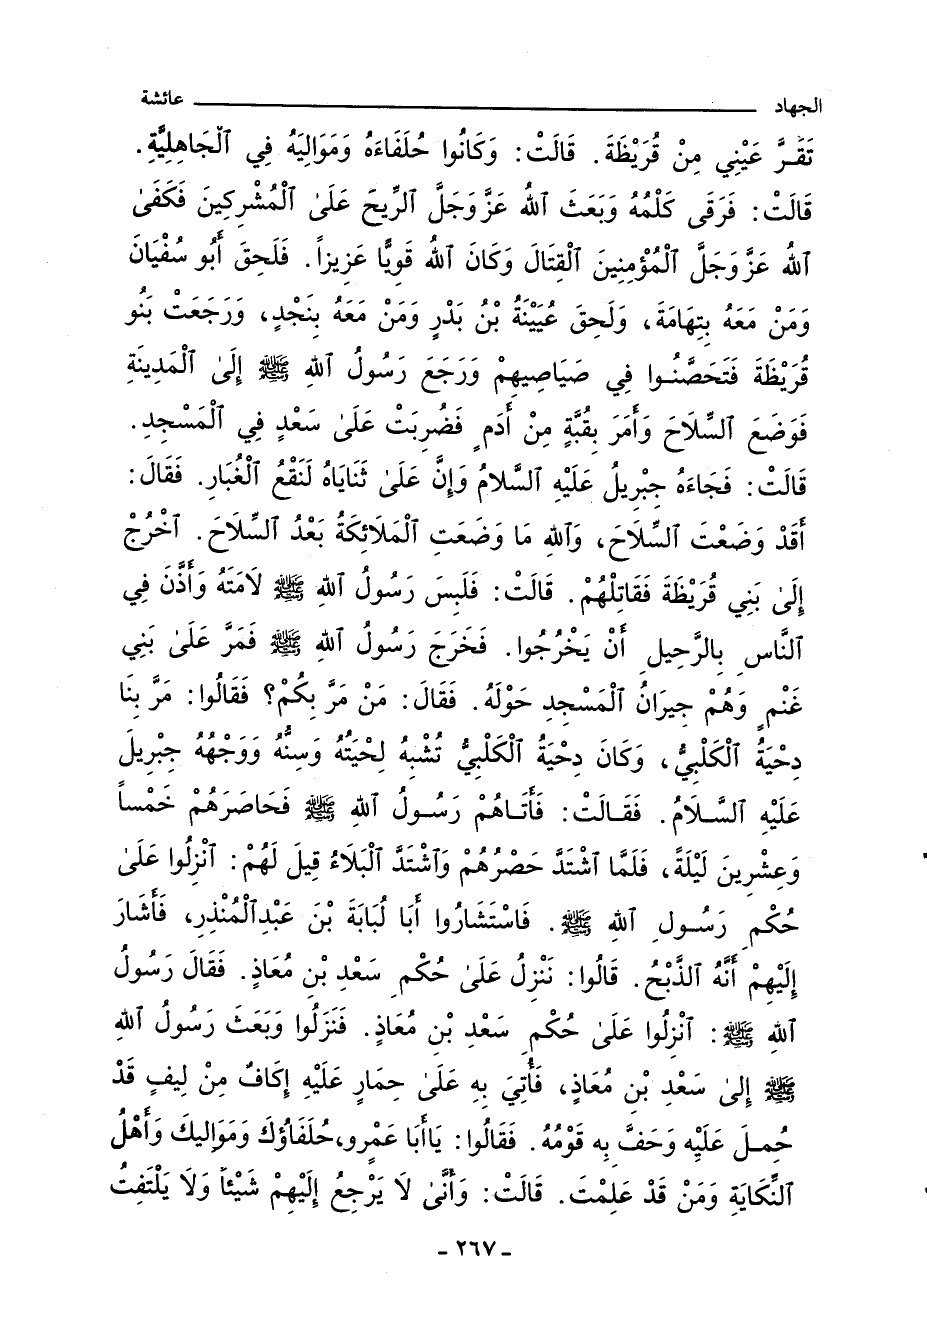 الجهاد عائشة
تَقَرَّ عَيْنِي مِنْ قُرَيْظَةَ. قَالَتْ: وَكَانُوا حُلَفَاءَهُ وَمَوَالِيَهُ فِي ٱلْجَاهِلِيَّةِ.
قَالَتْ: فَرَقَى كَلْمُهُ وَبَعَثَ ٱللهُ عَزَّ وَجَلَّ ٱلرِّيحَ عَلَىٰ ٱلْمُشْرِكِينَ فَكَفَىٰ
ٱللهُ عَزَّ وَجَلَّ ٱلْمُؤْمِنِينَ ٱلْقِتَالَ وَكَانَ ٱللهُ قَوِيًّا عَزِيزاً. فَلَحِقَ أَبُو سُفْيَانَ
وَمَنْ مَعَهُ بِتِهَامَةَ، وَلَحِقَ عُيَيْنَةُ بْنُ بَدْرٍ وَمَنْ مَعَهُ بِنَجْدٍ، وَرَجَعَتْ بَنُو
قُرَيْظَةَ فَتَحَصَّنُوا فِي صَيَاصِيهِمْ وَرَجَعَ رَسُولُ ٱللهِ ﷺ إِلَىٰ ٱلْمَدِينَةِ
فَوَضَعَ ٱلسِّلَاحَ وَأَمَرَ بِقُبَّةٍ مِنْ أَدَمٍ فَضُرِبَتْ عَلَىٰ سَعْدٍ فِي ٱلْمَسْجِدِ.
قَالَتْ: فَجَاءَهُ جِبْرِيلُ عَلَيْهِ ٱلسَّلَامُ وَإِنَّ عَلَىٰ ثَنَايَاهُ لَنَقْعُ ٱلْغُبَارِ. فَقَالَ:
أَقَدْ وَضَعْتَ ٱلسِّلَاحَ، وَٱللهِ مَا وَضَعَتِ ٱلْمَلَائِكَةُ بَعْدُ ٱلسِّلَاحَ. ٱخْرُجْ
إِلَىٰ بَنِي قُرَيْظَةَ فَقَاتِلْهُمْ. قَالَتْ: فَلَبِسَ رَسُولُ ٱللهِ ﷺ لَامَتَهُ وَأَذَّنَ فِي
ٱلنَّاسِ بِالرَّحِيلِ أَنْ يَخْرُجُوا. فَخَرَجَ رَسُولُ ٱللهِ ﷺ فَمَرَّ عَلَىٰ بَنِي
غَنْمٍ وَهُمْ جِيرَانُ ٱلْمَسْجِدِ حَوْلَهُ. فَقَالَ: مَنْ مَرَّ بِكُمْ؟ فَقَالُوا: مَرَّ بِنَا
دِحْيَةُ ٱلْكَلْبِيُّ، وَكَانَ دِحْيَةُ ٱلْكَلْبِيُّ تُشْبِهُ لِحْيَتُهُ وَسِنُّهُ وَوَجْهُهُ جِبْرِيلَ
عَلَيْهِ ٱلسَّلَامُ. فَقَالَتْ: فَأَتَاهُمْ رَسُولُ ٱللهِ ﷺ فَحَاصَرَهُمْ خَمْساً
وَعِشْرِينَ لَيْلَةً، فَلَمَّا ٱشْتَدَّ حَصْرُهُمْ وَٱشْتَدَّ ٱلْبَلَاءُ قِيلَ لَهُمْ: ٱنْزِلُوا عَلَىٰ
حُكْمِ رَسُولِ ٱللهِ ﷺ. فَاسْتَشَارُوا أَبَا لُبَابَةَ بْنَ عَبْدِٱلْمُنْذِرِ، فَأَشَارَ
إِلَيْهِمْ أَنَّهُ ٱلذَّبْحُ. قَالُوا: نَنْزِلُ عَلَىٰ حُكْمِ سَعْدِ بْنِ مُعَاذٍ. فَقَالَ رَسُولُ
ٱللهِ ﷺ: ٱنْزِلُوا عَلَىٰ حُكْمِ سَعْدِ بْنِ مُعَاذٍ. فَنَزَلُوا وَبَعَثَ رَسُولُ ٱللهِ
ﷺ إِلىٰ سَعْدِ بْنِ مُعَاذٍ، فَأُتِيَ بِهِ عَلَىٰ حِمَارٍ عَلَيْهِ إِكَافٌ مِنْ لِيفٍ قَدْ
حُمِلَ عَلَيْهِ وَحَفَّ بِهِ قَوْمُهُ. فَقَالُوا: يَاأَبَا عَمْرٍو،حُلَفَاؤُكَ وَمَوَالِيكَ وَأَهْلُ
ٱلنِّكَايَةِ وَمَنْ قَدْ عَلِمْتَ. قَالَتْ: وَأَنَّىٰ لَا يَرْجِعُ إِلَيْهِمْ شَيْئاً وَلَا يَلْتَفِتُ
- ٢٦٧ -